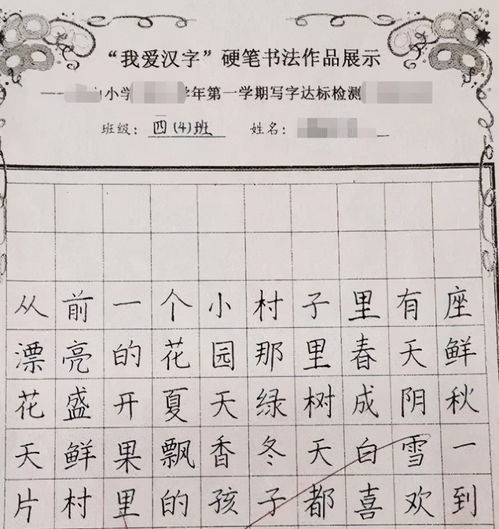 “我爱汉字”硬笔书法作品展示
小学 学年第一学期写字达标检测
班级：四(4)班 姓名：
从前一个小村子里有座
漂亮的花园那里春天鲜
花盛开夏天绿树成阴秋
天鲜果飘香冬天白雪一
片村里的孩子都喜欢到